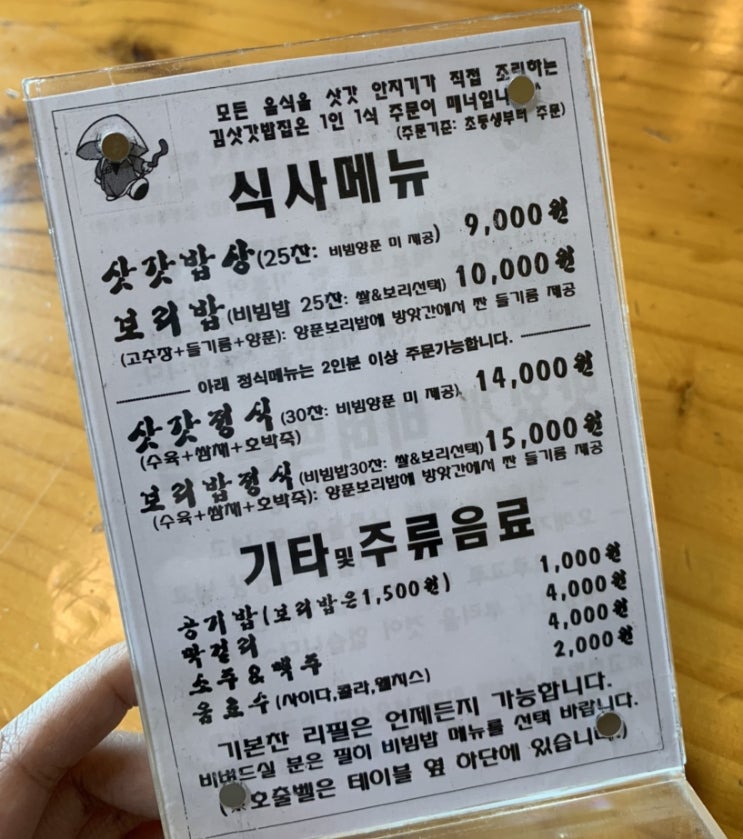 모든 음식을 삿갓 안지기가 직접 조리하는
김삿갓밥집은 1인 1식 주문이 매너입니
(주문기준: 초등생부터 주문)
식사메뉴
삿갓밥상(25찬: 비빔양푼 미 제공) 9,000원
보리밥(비빔밥 25찬: 쌀&보리선택) 10,000원
(고추장+들기름+양푼): 양푼보리밥에 방앗간에서 짠 들기름 제공
아래 정식메뉴는 2인분 이상 주문가능합니다.
삿갓정식(30찬: 비빔양푼 미 제공) 14,000원
(수육+쌈채+호박죽)
보리밥정식(비빔밥30찬: 쌀&보리선택) 15,000원
(수육+쌈채+호박죽): 양푼보리밥에 방앗간에서 짠 들기름 제공
기타및주류음료
공기밥(보리밥은1,500원) 1,000원
막걸리 4,000원
소주&맥주 4,000원
음료수(사이다,콜라,웰치스) 2,000원
기본찬 리필은 언제든지 가능합니다.
비벼드실 분은 필히 비빔밥 메뉴를 선택 바랍니다.
호출벨은 테이블 옆 하단에 있습니다.)